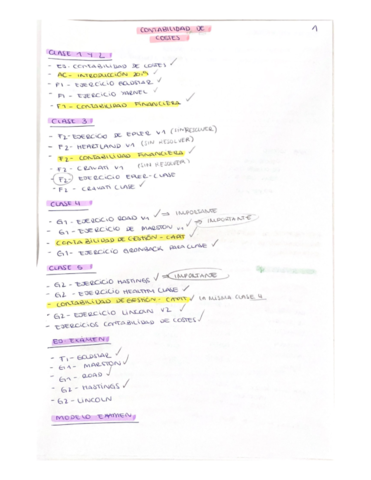 CONTABILIDAD DE
COSTES
1
CLASE 1 Y 2
- E0- CONTABILIDAD DE COSTES ✓
- AC- INTRODUCCIÓN 2019 ✓
- F1 - EJERCICIO GOLDSTAR ✓
- F1 - EJERCICIO ✓
- F1 - CONTABILIDAD FINANCIERA ✓
CLASE 3
- F2-EJERCICIO DE V1 (SIN RESOLVER)
- F2- HEARTLAND V1 (SIN RESOLVER)
- F2- CONTABILIDAD FINANCIERA ✓
- F2- CRAVATI V1 (SIN RESOLVER)
- F2- EJERCICIO EMER-CLASE
- F2- CRAVATI CLASE ✓
CLASE 4
- G1 - EJERCICIO ROAD V1 ✓ ⇒ IMPORTANTE
- G1 - EJERCICIO DE MARSTON V1 ✓ ⇒ IMPORTANTE
- CONTABILIDAD DE GESTIÓN - ✓
- G1- EJERCICIO PARA CLASE ✓
CLASE 5
- G2 - EJERCICIO HASTINGS ✓ ⇒ IMPORTANTE
- G2 - EJERCICIO CLASE ✓
- CONTABILIDAD DE GESTIÓN - ✓ LA MISMA CLASE 4
- G2 - EJERCICIO LINCOLN V2 ✓
- EJERCICIOS CONTABILIDAD DE COSTES ✓
EXAMEN
- GOLDSTAR ✓
- G1 - MARSTON ✓
- G1 - ROAD ✓
- G2 - HASTINGS ✓
- G2 - LINCOLN
MODELO EXAMEN